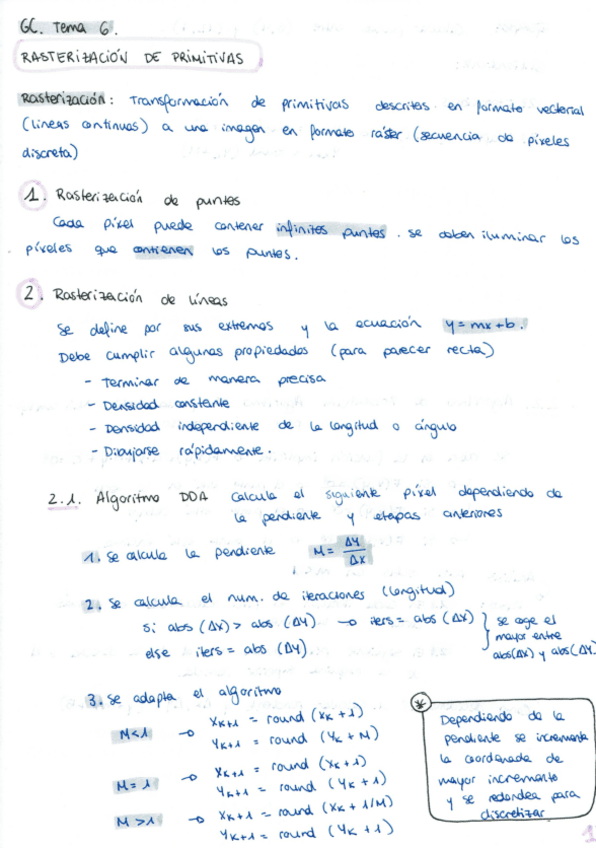 GC. Tema 6.
RASTERIZACIÓN DE PRIMITIVAS
Rasterización: Transformación de primitivas descritas en formato vectorial
(líneas continuas) a una imagen en formato ráster (secuencia de píxeles
discreta)
1. Rasterización de puntos
Cada píxel puede contener infinitos puntos. se deben iluminar los
píxeles que contienen los puntos.
2. Rasterización de líneas
Se define por sus extremos y la ecuación y = mx + b.
Debe cumplir algunas propiedades (para parecer recta)
- Terminar de manera precisa
- Densidad constante
- Densidad independiente de la longitud o ángulo
- Dibujarse rápidamente.
2.1. Algoritmo DDA Calcula el siguiente píxel dependiendo de
la pendiente y etapas anteriores
1. Se calcula la pendiente M = ΔY/ΔX
2. Se calcula el num. de iteraciones (longitud)
si abs (ΔX) > abs (ΔY) → iters = abs (ΔX)
else iters = abs (ΔY)
se coge el
mayor entre
abs(ΔX) y abs(ΔY)
3. Se adapta el algoritmo
M<1 → XK+1 = round (XK + 1)
YK+1 = round (YK + M)
M=1 → XK+1 = round (XK + 1)
YK+1 = round (YK + 1)
M>1 → XK+1 = round (XK + 1/M)
YK+1 = round (YK + 1)
*
Dependiendo de la
pendiente se incrementa
la coordenada de
mayor incremento
y se redondea para
discretizar
1